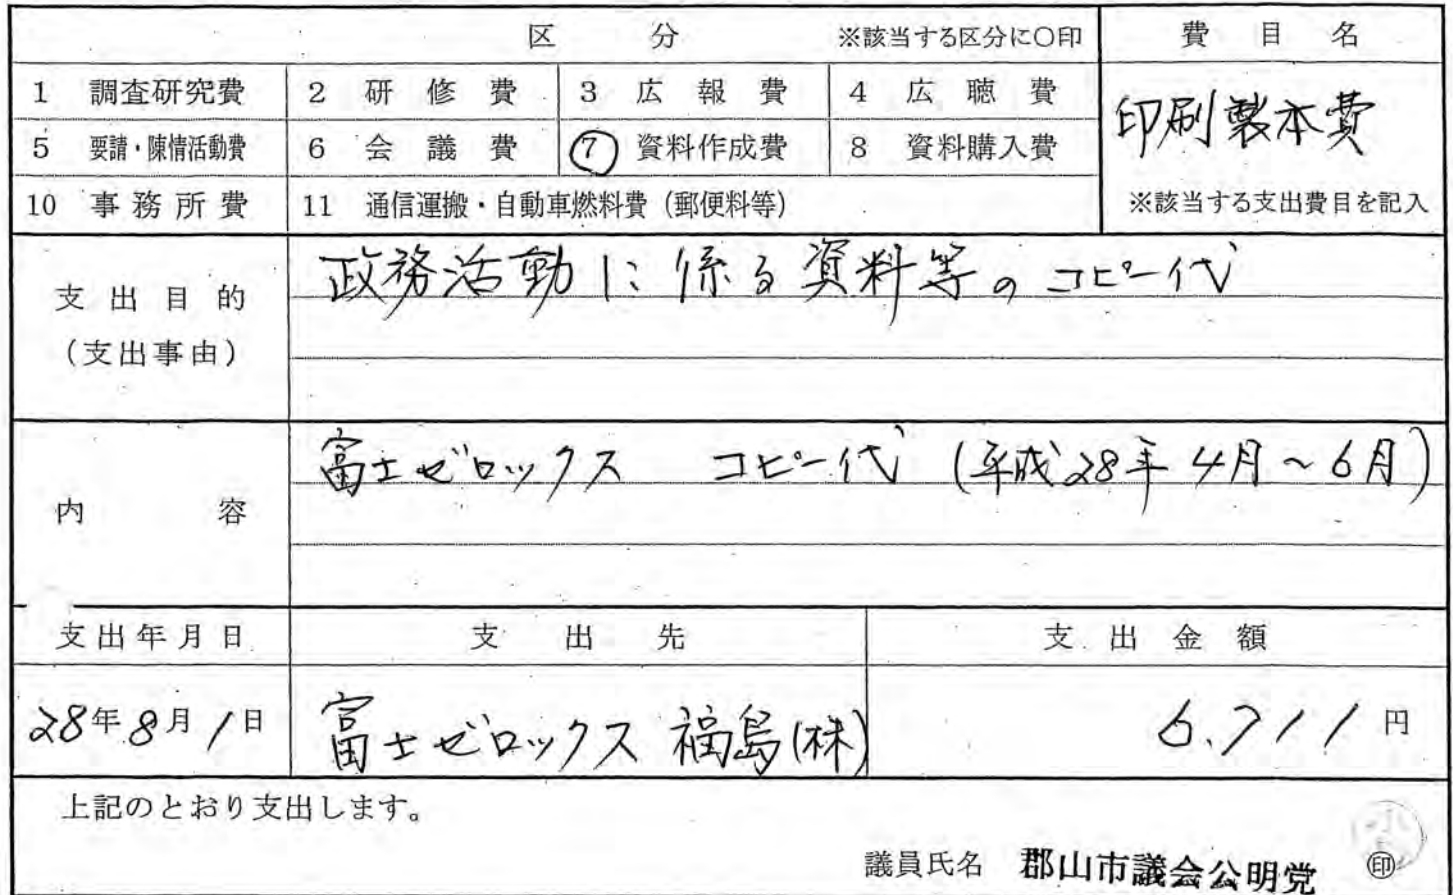 区 分 ※該当する区分に〇印 費 目 名
1 調査研究費 2 研 修 費 3 広 報 費 4 広 聴 費
印刷製本費
5 要請・陳情活動費 6 会 議 費 ⑦ 資料作成費 8 資料購入費
10 事務所費 11 通信運搬・自動車燃料費(郵便料等) ※該当する支出費目を記入
支出目的
(支出事由)
政務活動に係る資料等のコピー代
内 容
富士ゼロックス コピー代 (平成28年4月~6月)
支出年月日 支 出 先 支 出 金 額
28年8月1日 富士ゼロックス福島(株) 6,711円
上記のとおり支出します。
議員氏名 郡山市議会公明党 ㊞